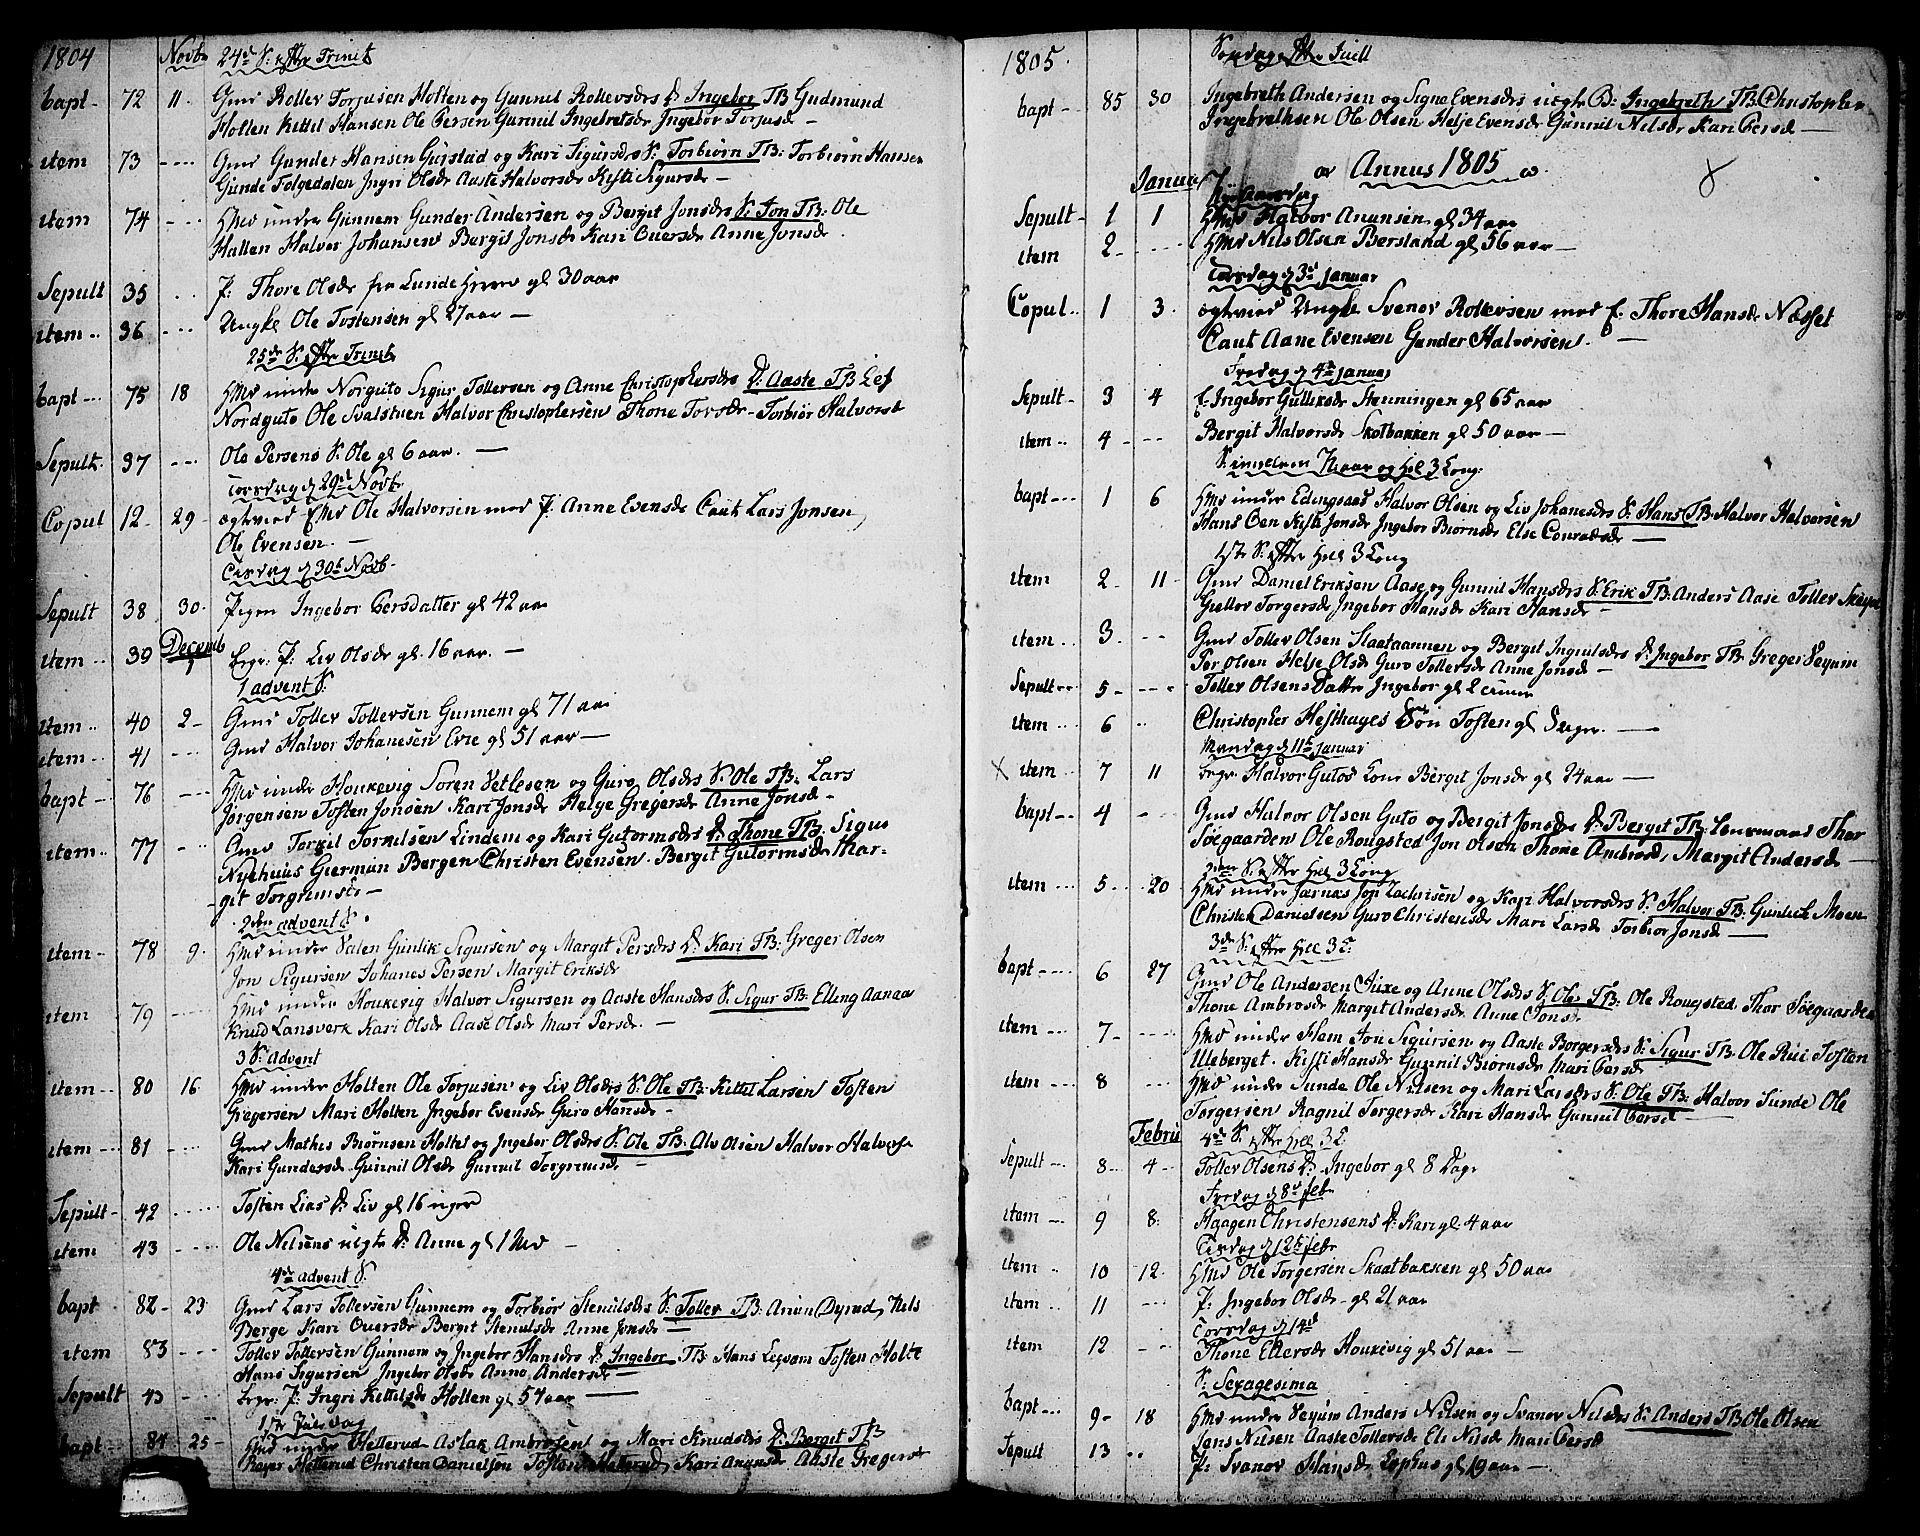 1804 Novb 24de S: efter Trinit
bapt- 72 11. Gmd Rollev Torjusen Holten og Gunnil Rollevsdrs D: Ingebor TB Gudmund
Holten Kittil Hansen Ole Persen Gunnil Ingebretsdr Ingebor Torjusdr
item 73 Gmd Gunder Hansen Gurstad og Kari Sigursdrs S: Torbiørn TB: Torbiørn Hansen
Gunde Folgedalen Ingri Olsdr Aaste Halvorsdr Kisti Sigursdr
item 74 Hmd under Gunnem Gunder Andersen og Bergit Jonsdrs S: Jon TB: Ole
Hallen Halvor Johansen Bergit Jonsdr Kari Oversdr Anne Jonsdr
Sepult 35 P: Thore Olsdr fra Lunde gl 30 aar
item 36 Ungkl Ole Tostensen gl 27 aar
25de S. efter Trinit
bapt 75 18 Hmd under Norguto Sigur Tollevsen og Anne Christophersdrs D: Aaste TB Lef
Nordguto Ole Svalstuen Halvor Christophersen Thone Torsdr Torbiør Halvorsd
Sepult. 37 Ole Persens S: Ole gl 6 aar.
Torsdag d 29de Novb
Copul 12 29 ægtevied EMd Ole Halvorsen med P: Anne Evensdr Caut Lars Jonsen,
Ole Evensen.
d 30te Novb
Sepult 38 30. Pigen Ingebor Persdatter gl 42 aar
Decemb
item 39 P: Liv Olsdr gl. 16 aar.
1 advent S.
item 40 2 Gmd Tollev Tollevsen Gunnem gl 71 aar
item 41 Gmd Halvor Johanesen Evie gl 51 aar
bapt 76 Hmd under Houkevig Søren Vetlesen og Guro Olsdrs S: Ole TB: Lars
Jørgensen Tosten Jonsen Kari Jonsdr Helge Gregersdr Anne Jonsd
item 77 Gmd Torkil Tornilsen Lindem og Kari Gutormsdrs D: Thone TB: Sigur
Nyehuus Gierman Bergen Christen Evensen. Bergit Gutormsdr Mar-
git Torgrimsdr
2den advent S.
item 78 9. Hmd under Valen Gunlik Sigursen og Margit Persdrs D: Kari TB: Greger Olsen
Jon Sigursen Johanes Persen Margit Eriksdr
item 79 Hmd under Houkevig Halvor Sigursen og Aaste Hansdrs S: Sigur TB: Elling Aanaa
Knud Lansverk Kari Olsdr Aase Olsdr Mari Persdr
3 S: Advent
item 80 16 Hmd under Holten Ole Torjusen og Liv Olsdrs S: Ole TB: Kittil Larsen Tosten
Gregersen Mari Holten Ingebor Evensdr Guro Hansdr
item 81 Gmd Mathis Biørnsen Holtes og Ingebor Olsdrs S: Ole TB: Alv Olsen Halvor Halvorse
Kari Gundersdr Gunnil Olsdr Gunnil Torgrimsdr
Sepult 42 Tosten Lias D: Liv gl 16 uger
item 43 Ole Nilsens uægte D: Anne gl 1 Md
4de advent S.
bapt 82 23 Gmd Lars Tollevsen Gunnem og Torbiør Stenulsdrs S: Tollev TB: Anun Dyrud, Nils
Berge Kari Oversdr Bergit Stenulsdr Anne Jonsdr
item 83 Tollev Tollevsen Gunnem og Ingebor Hansdrs D: Ingebor TB Hans Tosten Holte
Hans Sigursen Ingebor Olsdr Anne Andersdr
Sepult 43 P: Ingri Kittilsdr Holten gl 54 aar
1ste Juledag
bapt 84 25 Hmd under Hetterud Aslak Ambrosen og Mari Knudsdrs D: Bergit TB
Hetterud Christen Danielsen Tosten Hetterud, Kari Anunsdr Aaste Gregersd

1805. Søndag efter Juell
bapt 85 30 Ingebreth Andersen og Signe Evensdrs uægte B: Ingebreth TB: Christopher
Ingebrethsen Ole Olsen Helje Evensdr Gunnil Nilsdr Kari Persdr
Annus 1805
Januar Nyt Aarsdag
Sepult 1 1 Hmd Halvor Anunsen gl 34 aar
item 2 Hmd Nils Olsen Bersland gl 56 aar
Torsdag d 3de Januar
Copul 1 3. ægtevied Ungkl Svenor Rollevsen med P. Thore Hansdr Næsset
Caut Aane Evensen Gunder Halvorsen.
Fredag d 4de Januar
Sepult 3 4 Ingebor Gullixsdr Stenningen gl 65 aar
item 4 Bergit Halvorsdr Skotbakken gl 50 aar
S: imellem N aar og Hel 3 Kong:
bapt 1 6 Hmd under Edingsaas Halvor Olsen og Liv Johanesdrs S: Hans TB: Halvor Halvorsen
Hans Oen Kisti Jonsdr Ingebor Biørnsdr Else Conradsdr
1ste S. efter Hell 3 Kong
item 2 11 Gmd Daniel Eriksen Aase og Gunnil Hansdrs S: Erik TB: Anders Aase Tollev
Giellov Torgersdr Ingebor Hansdr Kari Hansdr
item 3. Gmd Tollev Olsen Slaataannen og Bergit Ingrulsdrs D: Ingebor TB Greger Vejum
Per Olsen Helje Olsdr Guro Tollevsdr Anne Jonsdr
Sepult 5 Tollev Olsens Datter Ingebor gl 2 timer
item 6 Christopher Hesthages Søn Tosten gl 5 uger.
Mandag d 11te Januar
item 7 11 Halvor Gutos Kone Bergit Jonsdr gl 24 aar
bapt 4 Gmd Halvor Olsen Guto og Bergit Jonsdrs D: Bergit TB: Lensmans Thor
Søegaarden Ole Rougsted Jon Olsen Thone Ambrosd, Margit Andersdr
2den S. efter Hell 3 Kong
item 5 20 Hmd under Jernæs Jon Zachrisen og Kari Halvorsdrs S: Halvor TB: Gunleck Moen
Christen Danielsen Guro Christensdr Mari Larsdr Torbiør Jonsdr
3de S. efter Hell 3 K.
bapt 6 27 Gmd Ole Andersen Juxe og Anne Olsdrs S: Ole TB: Ole Rougsted Thor Søegaarden
Thone Ambrosdr Margit Andersdr Anne Jonsdr
item 7 Hmd under Hem Jon Sigursen og Aaste Borgersdrs S: Sigur TB: Ole Rui Tostan
Uleberget. Kisti Hansdr Gunnil Biørnsdr Mari Persdr
item 8 Hmd under Sunde Ole Nilsen og Mari Larsdrs S: Ole TB: Halvor Sunde Ole
Torgersen Ragnil Torgersdr Kari Hansdr Gunnil Persd
Febru 4de S. efter Hell 3 K
Sepult 8 4 Tollev Olsens D: Ingebor gl 8 Dage
Fredag d 8de feb
item 9 8. Haagen Christensens D: Kari gl 4 aar
Tirsdag d 12te feb
item 10 12. Hmd Ole Torgersen Skaatbakken gl 50 aar
item 11 P: Ingebor Olsdr gl 21 aar
Torsdag d 14de
item 12 Thone Ellevsdr Houkevig gl 51 aar
S: Sexagesima
bapt 9 18 Hmd under Vejum Anders Nilsen og Svanov Nilsdrs S: Anders TB: Ole Olsen
Jens Nilsen Aaste Tollevsdr Eli Nilsdr Mari Persdr
Sepult 13 P: Svanov Hansdr gl 19 aar